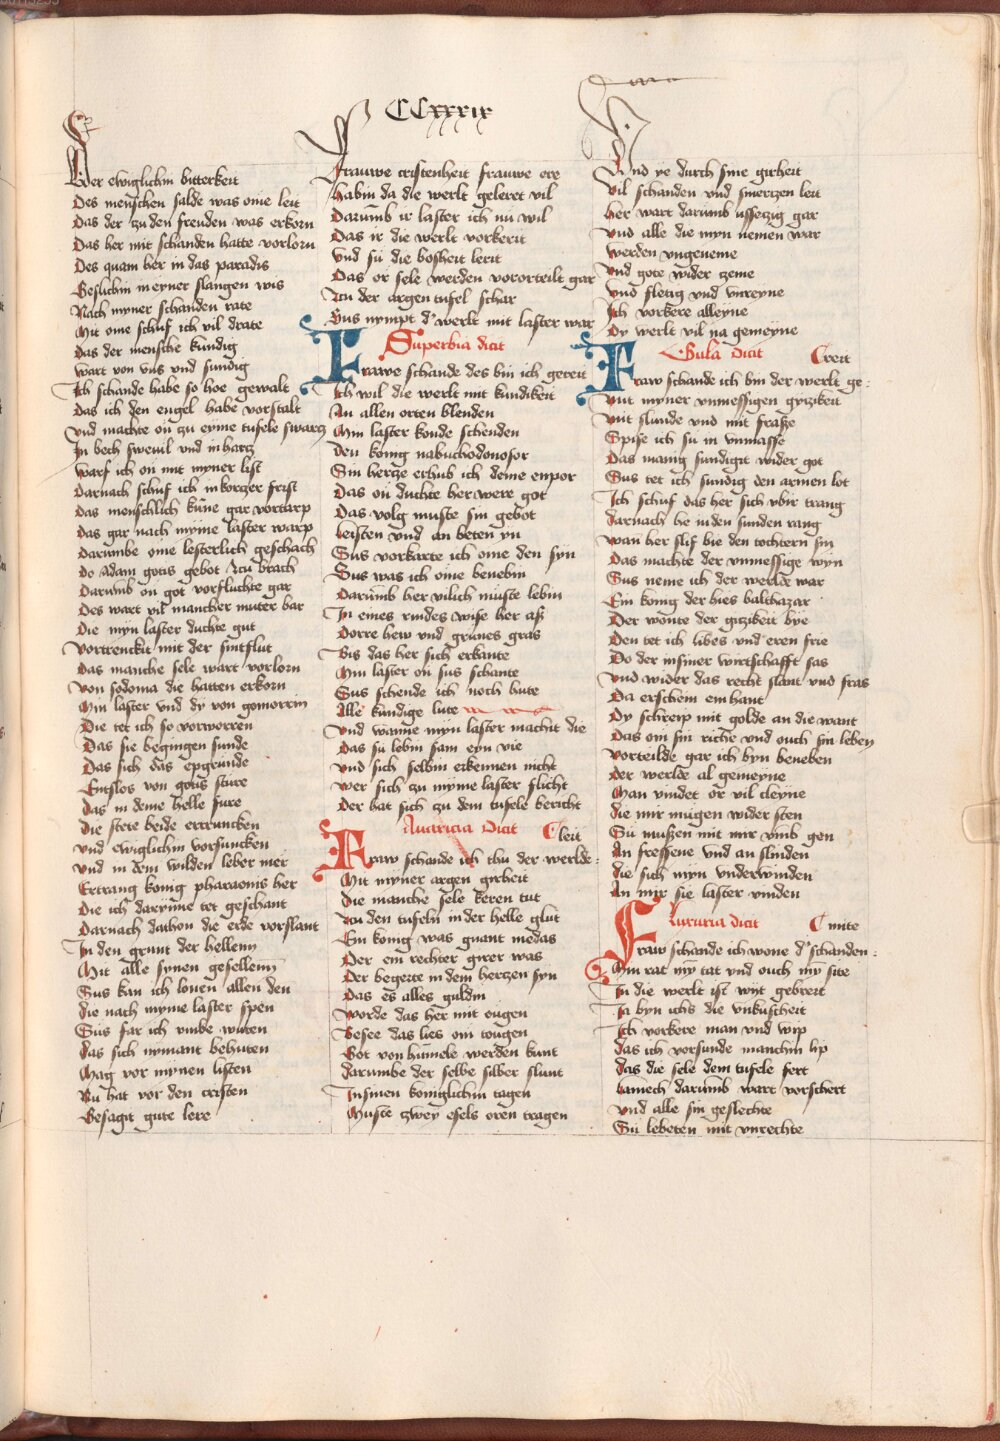 CCxxxix
Der ewiglichin bitterkeit
Des menschen salde was ome leit
Das der zu den freuden was erkorn
Das her mit schanden hatte vorlorn
Des quam her in das paradis
Geslichin in eyner slangen wis
Nach myner schanden rate
Mit ome schuf ich vil drate
Das der mensche kundig
Wart von vns und sundig
Ich schande habe so hoe gewalt
Das ich den engel habe vorstalt
Und machte on zu eyme tufele swarcz
In bech swewil und in harcz
Warf ich on mit myner list
Darnach schuf ich in korczer frist
Das menschlich kune gar vortarp
Das gar nach myme laster warp
Darumbe ome lesterlich geschach
Do Adam gotis gebot zcu brach
Darumb on got vorfluchte gar
Des wart vil mancher muter bar
Die myn laster duchte gut
Vortrenckit mit der sintflut
Das manche sele wart vorlorn
Von sodoma die hatten erkorn
Min laster und dy von gomorrin
Die tet ich so vorworren
Das sie begingen sunde
Das sich das epgrunde
Entslos von gotis sture
Das in deme helle fure
Die stete beide ertruncken
Und ewiglichin vorsuncken
Und in dem wilden leber mer
Ertrang konig pharaonis her
Die ich darynne tet geschant
Darnach dathon die erde vorslant
In den grunt der hellenn
Mit alle synen gesellenn
Sus kan ich lonen allen den
Die nach myme laster spen
Sus far ich vmbe wuten
Das sich nymant behuten
Mag vor mynen listen
Nu hat vor den cristen
Gesagit gute lere
Frauwe cristenheit frauwe ere
Habin da die werlt geleret vil
Darumb ir laster ich nu wil
Das ir die werlt vorkerit
Und su die bosheit lerit
Das or sele werden vororteilt gar
Zcu der argen tufel schar
Sus nympt d' werlt mit laster war
Superbia dicit
Frawe schande des bin ich gereit
Ich wil die werlt mit kundikeit
An allen orten blenden
Min laster konde schenden
Den konig nabuchodonosor
Sin hertze erhub ich deme enpor
Das on duchte her were got
Das volg muste sin gebot
Leisten und an beten yn
Sus vorkarte ich ome den syn
Sus was ich ome benebin
Darumb her vilich muste lebin
In eines rindes wise her as
Dorre hew und grunes gras
Bis das her sich erkante
Min laster on sus schante
Sus schende ich noch hute
Alle kundige lute
Und wanne myn laster machit die
Das su lebin sam eyn vie
Und sich selbin erkennen nicht
Wer sich zu myme laster flicht
Der hat sich zu dem tufele bericht
Auaricia dicit Cleit
Fraw schande ich thu der werlde
Mit myner argen girheit
Die manche sele keren tut
Zcu den tufeln in der helle glut
Ein konig was gnant medas
Der ein rechter girer was
Der begerte in dem herczen syn
Das es alles guldin
Worde das her mit ougen
Besee das lies om tougen
Got von humele werden kunt
Darumbe der selbe silber slunt
In sinen koniglichin tagen
Muste zwey esels oren tragen
Und ye durch sine girheit
Vil schanden und smerczen leit
Her wart darumb ussetzig gar
Und alle die myn nemen war
Werden ungeneme
Und gote wider zeme
Und fletig und vnreyne
Ich vorkere alleyne
Dy werlt vil na gemeyne
Gula dicit Creit
Fraw schande ich bin der werlt ge
Mit myner vnmessigen gizikeit
Mit slunde und mit frasze
Spise ich su in vnmasse
Das manig sundigit wider got
Sus tet ich sundig den armen lot
Ich schuf das her sich vbir trang
Darnach he in den sunden rang
Wan her slif bie den tochtern sin
Das machte der vnmessige wyn
Sus neme ich der werlde war
Ein konig der hies balthazar
Der wonte der gizikeit bye
Den tet ich libes und eren frie
Do der in siner wirtschafft sas
Und wider das recht slant und fras
Da erschein ein hant
Dy schreip mit golde an die want
Das om sin riche und ouch sin leben
Vorteilde gar ich byn beneben
Der werlde al gemeyne
Man vindet or vil cleyne
Die mir mugen wider sten
Su muszen mit mir vmb gen
An fressene und an slinden
Die sich myn underwinden
An mir sie laster vinden
Luxuria dicit Cmite
Fraw schande ich wone d' schanden
Min rat my tat und ouch my site
In die werlt ist wyt gebreit
Ja byn ichs die vnkuscheit
Ich vorkere man und wip
Das ich vorsunde manchin lip
Das die sele dem tufele fert
Lamech darumb wart vorschert
Und alle sin geslechte
Su lebeten mit vnrechte